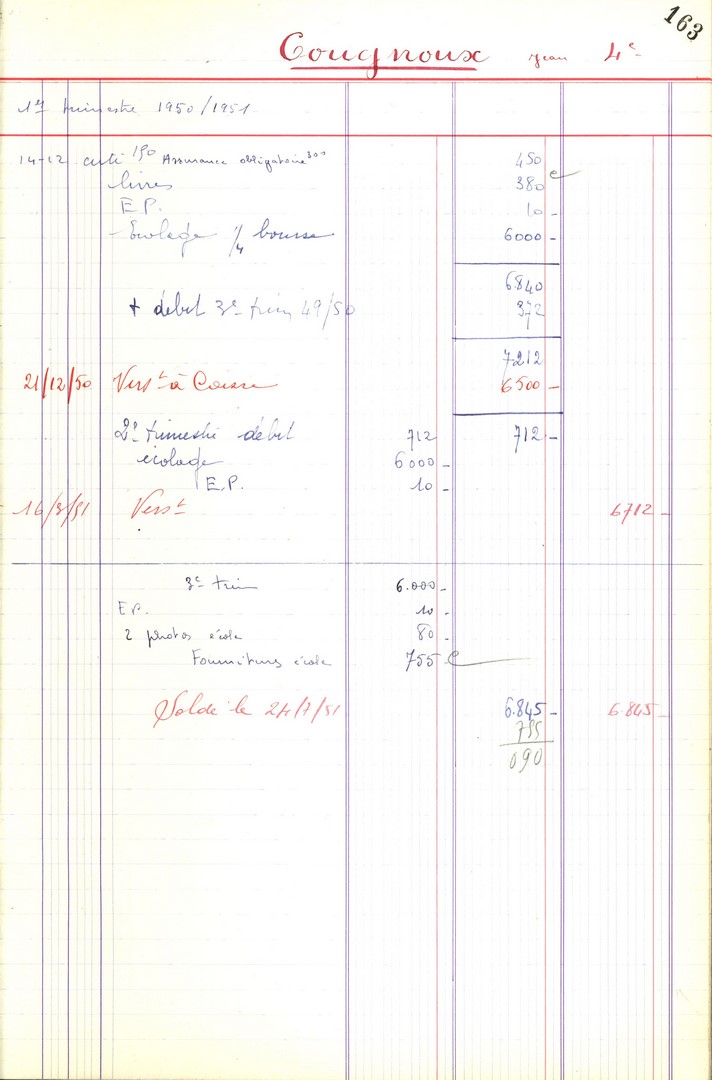 163
Cougnoux Jean 4e
1er trimestre 1950/1951
14-12 cuti 150 Assurance obligatoire 300 450
livres 380
E.P. 10 -
Ecolage 1/4 bourse 6000 -
6.840
+ débit 3e trim 49/50 372
7212
21/12/50 Verst à Caisse 6500 -
2e trimestre débit 712 712 -
écolage 6000 -
E.P. 10 -
16/3/51 Verst 6712 -
3e trim 6.000 -
E.P. 10 -
2 photos école 80 -
Fournitures école 755
Solde le 24/7/51 6.845 - 6.845 -
755
090